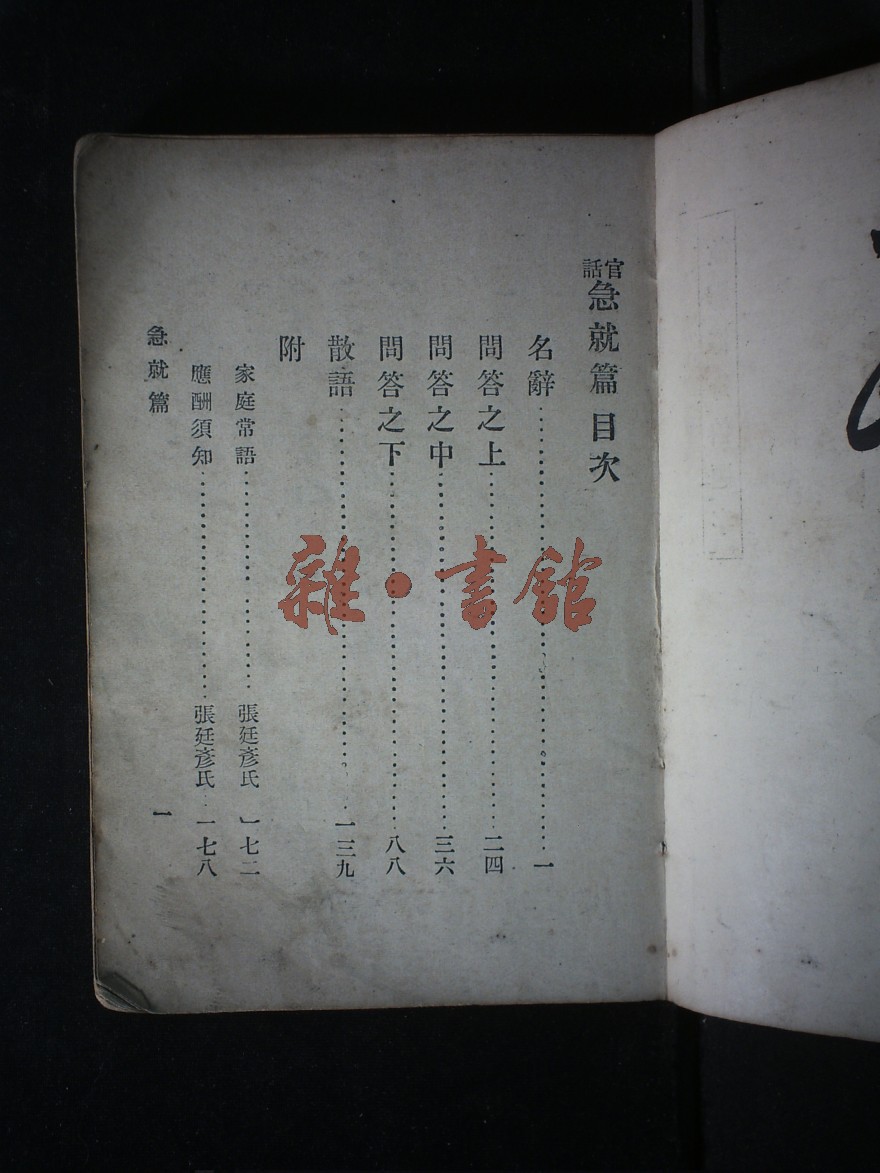 官話急就篇 目次
名辭……一
問答之上……二四
問答之中……三六
問答之下……八八
散語……一三九
附
家庭常語……張廷彥氏 一七二
應酬須知……張廷彥氏 一七八
急就篇
一
雜·書館